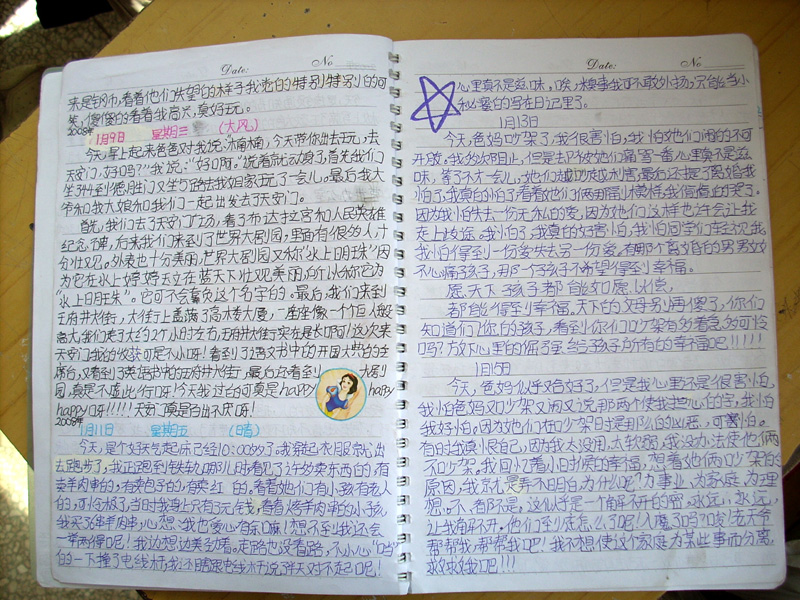 Date: No
来是钢币,看着他们失望的样子我觉的特别特别的可
笑,傻傻的看着我高兴,真好玩。
2008年
1月9日 星期三 (大风)
今天,早上起来爸爸对我说:"楠楠,今天带你出去玩,去
天安门,好吗?"我说:"好啊。"说着就动身了,首先我们
坐344到德胜门又坐5路去我姐家玩了一会儿,最后我大
爷和我大娘和我们一起出发去了天安门。
首先,我们去了天安门广场,看了布达拉宫和人民英雄
纪念碑,后来我们来到了世界大剧园,里面有很多人,十
分壮观。外表也十分美丽,世界大剧园又称"水上明珠"因
为它在水上婷婷玉立在蓝天下壮观美丽,所以人称它为
"水上明珠"。它可不会辜负这个名字的。最后,我们来到
王府井大街,大街上盖满了高大楼大厦,一座坐像一个巨人般
高大,我们走了大约2个小时左右,王府井大街实在是长啊!这次来
天安门我的收获可是不小呀!看到了语文书中的开国大典的主
席台,又看到了英语书中的王府井大街,最后还看到 大剧
园,真是不虚此行呀!今天我过的可真是happy happy
happy呀!!!!!天安门真是百出不厌呀!
2008年
1月11日 星期五 (晴)
今天,是个好天气起床已经10:00分了。我穿起衣服就出
去跑步了,我正跑到铁软那儿时看见了许多卖东西的,有
卖羊肉串的,有卖包子的,有卖红 的。看着她们有小孩有老人
的,可怜极了,当时我身上只有3元钱,看着烤羊肉串的小孩,
我买了6串羊肉串,心想:我也爱心有加嘛!想不到我还会
一举两得呢!我边想边美动着。走路也没看路,不小心"当"
的一下撞了电线杆,我还瞎跟电线杆说了半天对不起呢!
Date: No
心里真不是滋味,唉,糗事我可不敢外扬,只能当小
秘密的写在日记里了。
1月13日
今天,爸妈吵架了,我很害怕,我怕她们闹的不可
开胶,我多次阻止,但是去
味,等了不一会儿,她们 最后还提了离婚,我
怕了,我真的怕了,看着她们俩 模样,我偷偷的哭了。
因为我怕失去一份无私的爱,因为他们这样也许会让我
走上歧途。我怕了,我真的好害怕,我怕同学们轻视我,
我怕得到一份爱失去另一份爱,有那个离婚的男男女女
不心痛孩子,那个孩子不希望得到幸福。
愿天下孩子都能如愿以偿,
都能得到幸福,天下的父母别再傻了,你们
知道吗?你的孩子,看到你们吵架有多着急,多可怜
吗?放下心里的倔了,还给孩子所有的幸福吧!!!!!
1月15日
今天,爸妈似乎和好了,但是我心里还是很害怕,
我怕爸妈又吵架又闹又说,那两个使我担心的字,我怕
我好怕,因为她们在吵架时是那么的凶恶,可害怕。
有时我真恨自己,因为我太没用,太软弱,我没办法使他俩
不吵架,我回忆着小时候的幸福,想着她俩吵架的
原因,我就是弄不明白,为什么呢?为事业,为家庭,为理
想,不,都不是,这似乎是一个解不开的密,永远,永远,
让我解不开。他们到底怎么了呢!入魔了吗?唉!老天爷
帮帮我,帮帮我吧!我不想使这个家庭为某此事而分离,
求求我吧!!!